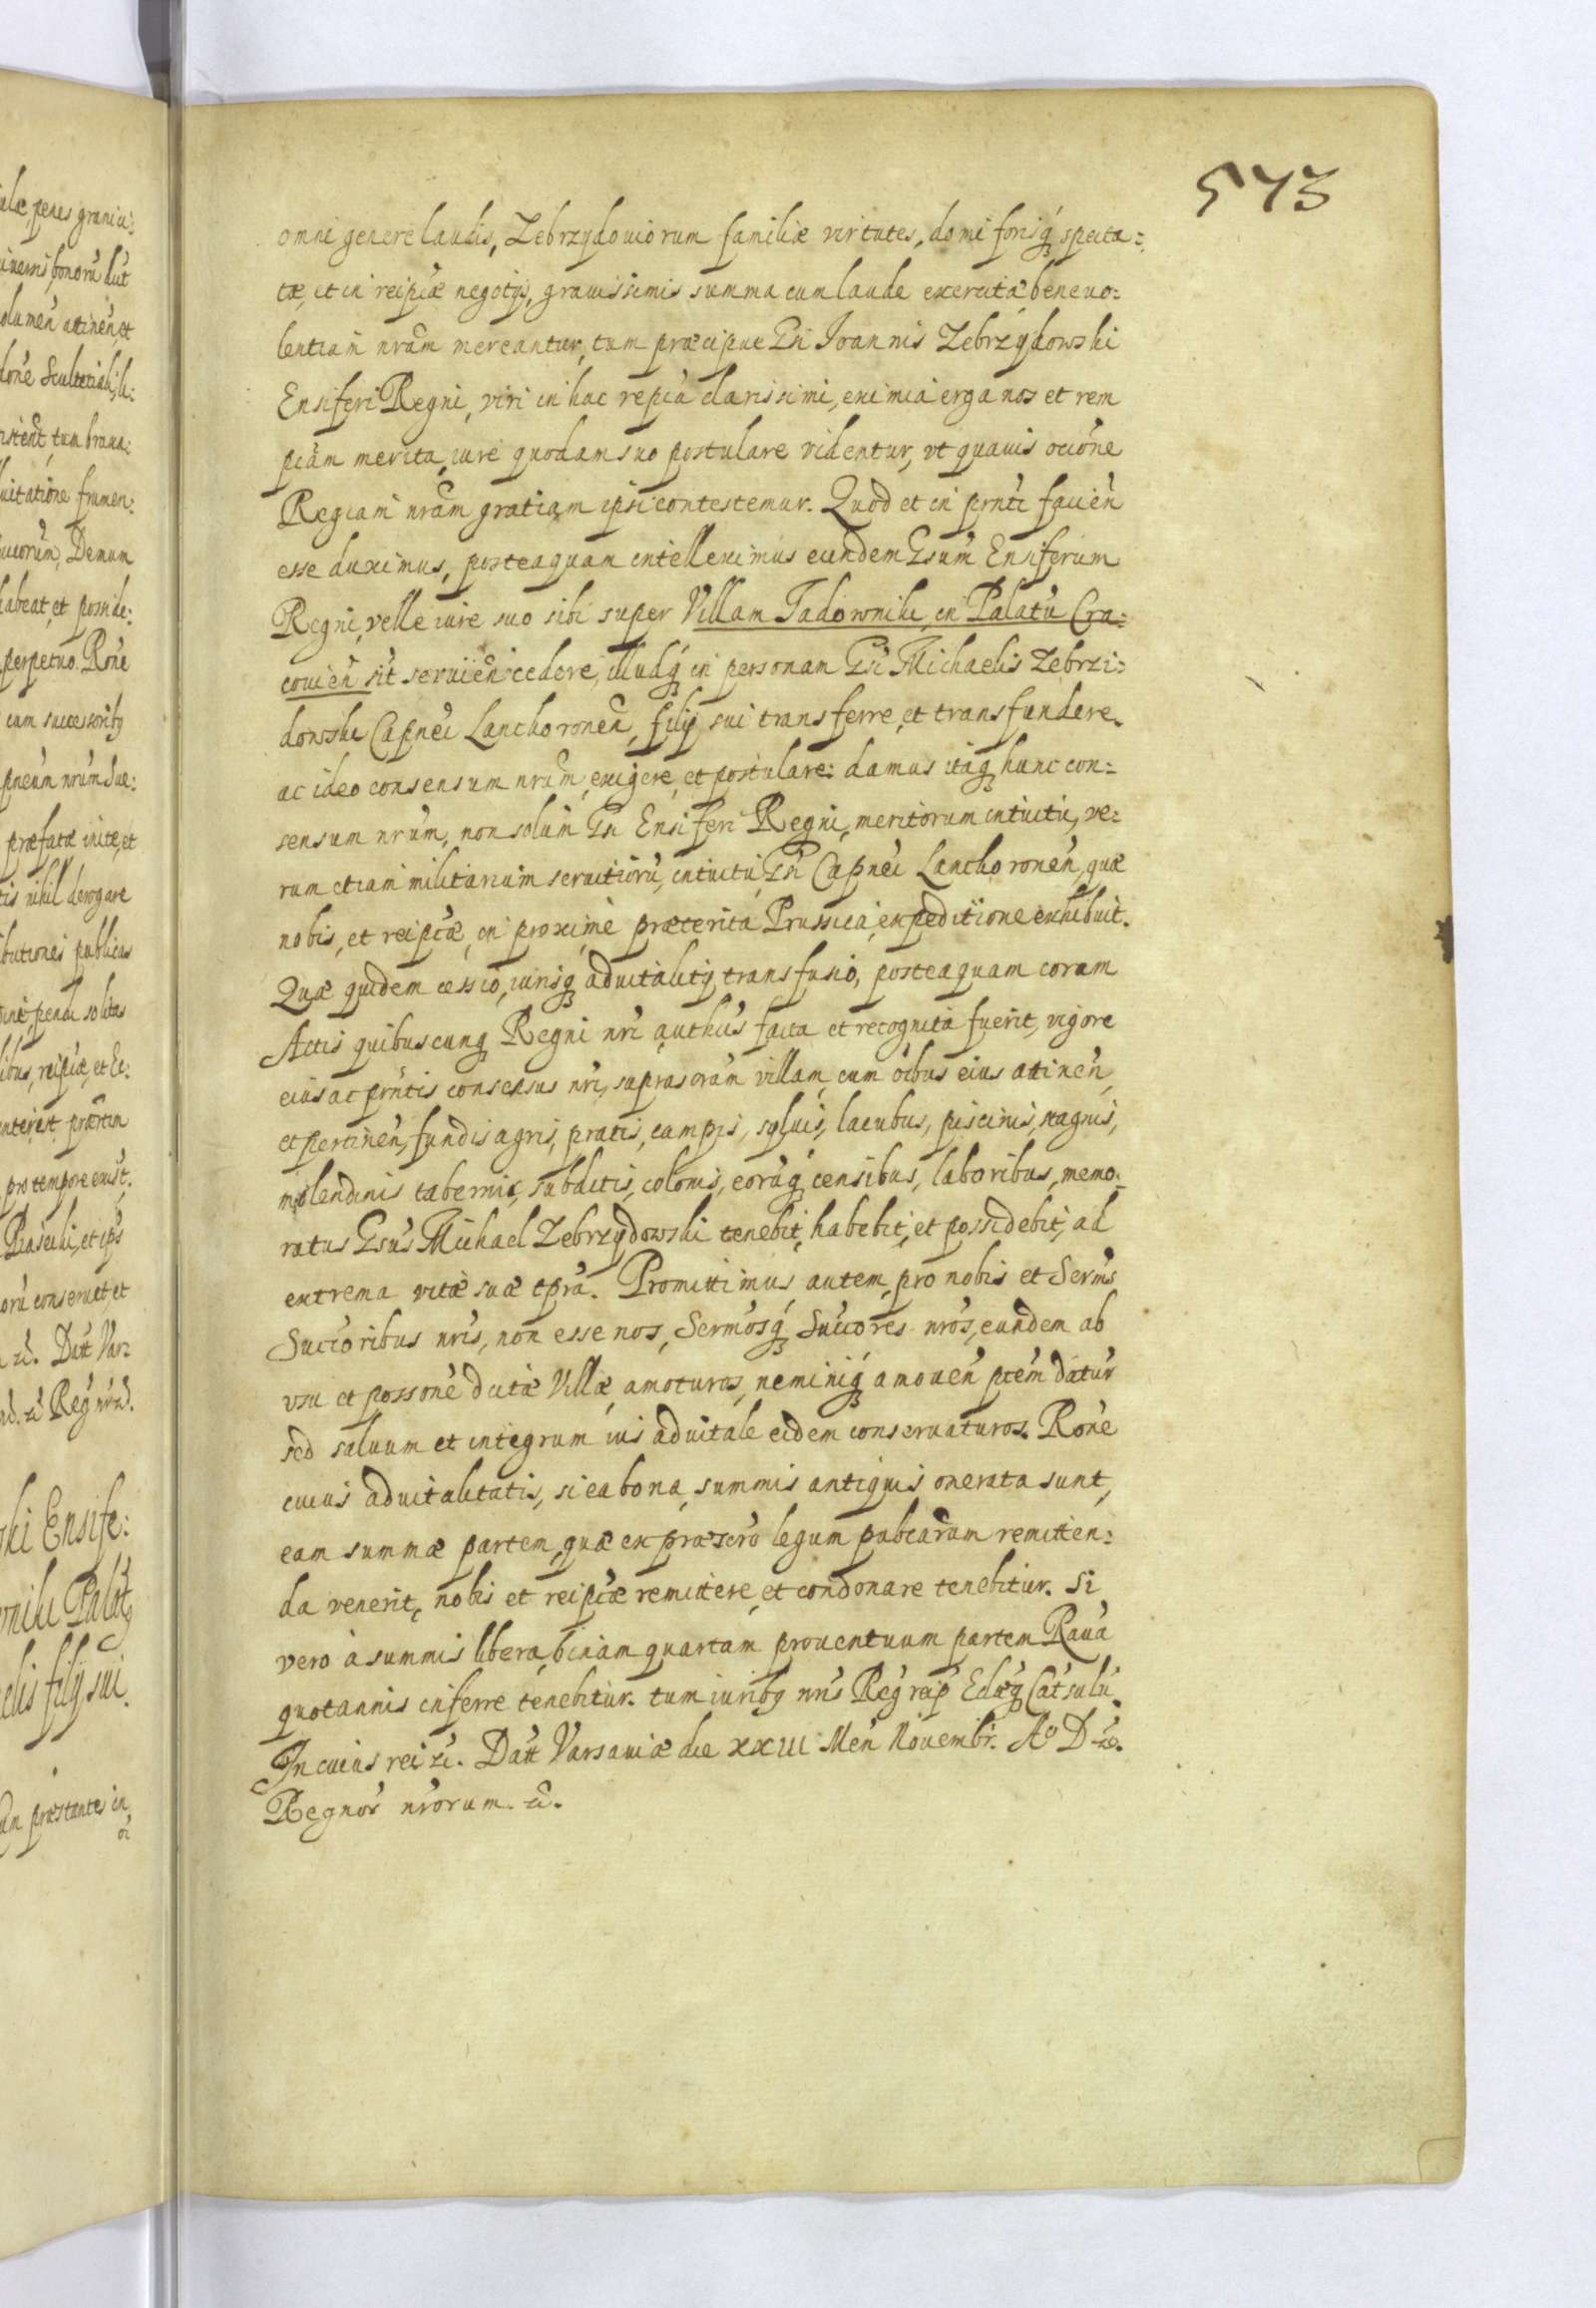 573
omni genere laudis, Zebrzydouiorum familiæ virtutes, domi forisq́ specta:
tæ, et in reipcæ negotijs, grauissimis summa cum laude exercitæ beneuo:
lentiam nrãm mereantur, tum præcipue Gsi Ioannis Zebrzydowski
Ensiferi Regni, viri in hac repca clarissimi, eximia erga nos et rem
pcãm merita, iure quodam suo postulare videntur, vt quauis occióne
Regiam nrãm gratiam ipsi contestemur. Quod et in prnti facień
esse duximus, posteaquam intelleximus eundem Gsum Ensiferum
Regni, velle iure suo sibi super Villam Jadowniki, in Palatu Cra:
couień sit seruień cedere, illudq́ in personam Gsi Michaelis Zebrzi:
dowski Capnei Lanckoroneń, filij sui transferre, et transfundere.
ac ideo consensum nrũm, exigere, et postulare: damus itaq hunc con:
sensum nrũm, non solum Gsi Ensiferi Regni, meritorum intuitu, ve:
rum etiam militarium seruitiorũ, intuitu, Gsi Capnei Lanckoroneń, quæ
nobis, et reipcæ, in proximè præterita Prussica, expeditione exhibuit.
Quæ quidem cessio, iurisq́ aduitalitij transfusio, posteaquam coram
Actis quibuscunq Regni nri authcis facta et recognita fuerit, vigore
eius ac prntis consensus nri, suprascram villam, cum oibus eius attineń,
et pertineń, fundis agris, pratis, campis, syluis, lacubus, piscinis, stagnis,
molendinis tabernis, subditis, colonis, eorũq́ censibus, laboribus, memo:
ratus Gsus Michael Zebrzydowski tenebit, habebit, et possidebit, ad
extrema vitæ suæ tpra. Promittimus autem, pro nobis et Sermis
Succoribus nris, non esse nos, Sermosq́ Succores nros, eundem ab
vsu et possone dictæ Villæ, amoturos, neminiq́ amoueń ptem datur
sed saluum et integrum ius aduitale eidem conseruaturos. Rone
cuius aduitalitatis, si ea bona, summis antiquis onerata sunt,
eam summæ partem, quæ ex præscro legum pubcarum remitten:
da venerit, nobis et reipcæ remittere, et condonare tenebitur. Si
vero à summis libera, binam quartam prouentuum partem Raua
quotannis inferre tenebitur. tum iuribq nris Reg reip Eclæq Cat salu.
In cuius rei zc. Datt Varsauiæ die XXIII Meń Nouembr. Aº D zc.
Regnor nrorum. zc.